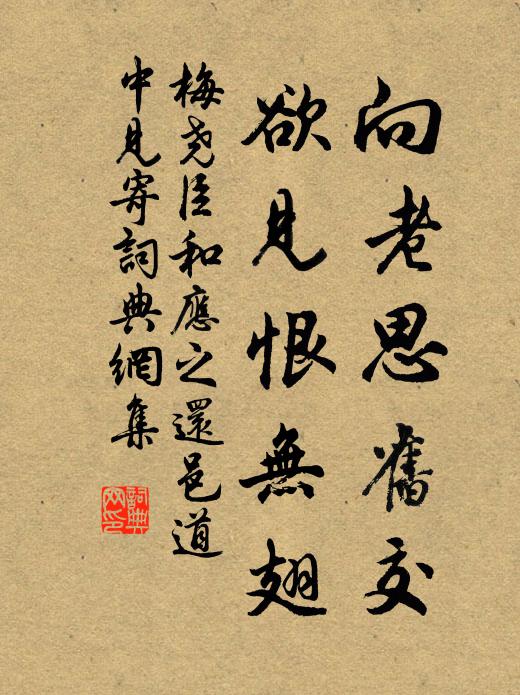 向老思舊交
欲見恨無翅
梅堯臣和應之還邑道
中見寄詞典網集
詞典
网印